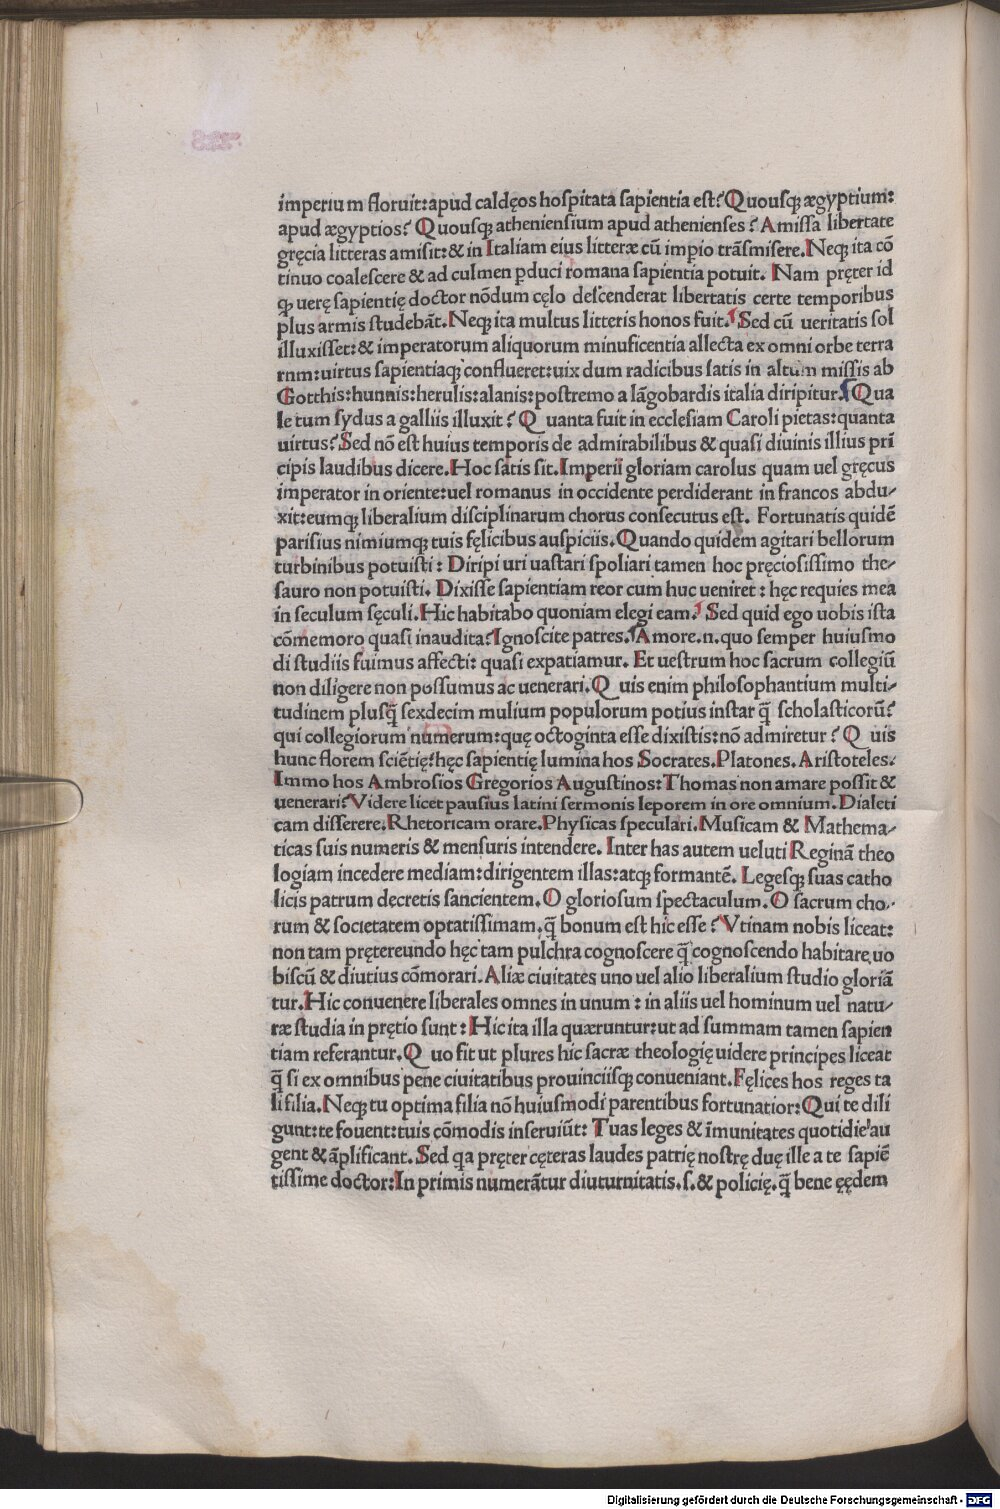 imperium floruit: apud caldęos hospitata sapientia est? Quousq; ægyptium:
apud ægyptios? Quousq; atheniensium apud athenienses? Amissa libertate
gręcia litteras amisit: & in Italiam eius litteræ cū impio trāsmisere. Neq; ita cō
tinuo coalescere & ad culmen ꝑduci romana sapientia potuit. Nam pręter id
ꝙ uerę sapientię doctor nōdum cęlo descenderat libertatis certe temporibus
plus armis studebāt. Neq; ita multus litteris honos fuit. Sed cū ueritatis sol
illuxisset: & imperatorum aliquorum minuficentia allecta ex omni orbe terra
rnm: uirtus sapientiaq; conflueret: uix dum radicibus satis in altum missis ab
Gotthis: hunnis: herulis: alanis: postremo a lāgobardis italia diripitur. Qua
le tum sydus a galliis illuxit? Quanta fuit in ecclesiam Caroli pietas: quanta
uirtus? Sed nō est huius temporis de admirabilibus & quasi diuinis illius pri
cipis laudibus dicere. Hoc satis sit. Imperii gloriam carolus quam uel gręcus
imperator in oriente: uel romanus in occidente perdiderant in francos abdu-
xit: eumq; liberalium disciplinarum chorus consecutus est. Fortunatis quidē
parisius nimiumq; tuis fęlicibus auspiciis. Quando quidem agitari bellorum
turbinibus potuisti: Diripi uri uastari spoliari tamen hoc pręciosissimo the-
sauro non potuisti. Dixisse sapientiam reor cum huc ueniret: hęc requies mea
in seculum sęculi. Hic habitabo quoniam elegi eam. Sed quid ego uobis ista
cōmemoro quasi inaudita? Ignoscite patres. Amore .n. quo semper huiusmo
di studiis fuimus affecti: quasi expatiamur. Et uestrum hoc sacrum collegiū
non diligere non possumus ac uenerari. Quis enim philosophantium multi-
tudinem plusq̄ sexdecim mulium populorum potius instar q̄ scholasticorū?
qui collegiorum numerum: quę octoginta esse dixistis: nō admiretur? Quis
hunc florem sciētię? hęc sapientię lumina hos Socrates. Platones. Aristoteles.
Immo hos Ambrosios Gregorios Augustinos: Thomas non amare possit &
uenerari? Videre licet pausius latini sermonis leporem in ore omnium. Dialeti
cam disserere. Rhetoricam orare. Physicas speculari. Musicam & Mathema-
ticas suis numeris & mensuris intendere. Inter has autem ueluti Reginā theo
logiam incedere mediam: dirigentem illas: atq; formantē. Legesq; suas catho
licis patrum decretis sancientem. O gloriosum spectaculum. O sacrum cho-
rum & societatem optatissimam. q̄ bonum est hic esse? Vtinam nobis liceat:
non tam prętereundo hęc tam pulchra cognoscere q̄ cognoscendo habitare uo
biscū & diutius cōmorari. Aliæ ciuitates uno uel alio liberalium studio gloriā
tur. Hic conuenere liberales omnes in unum: in aliis uel hominum uel natu-
ræ studia in prętio sunt: Hic ita illa quæruntur: ut ad summam tamen sapien
tiam referantur. Quo fit ut plures hic sacræ theologię uidere principes liceat
q̄ si ex omnibus pene ciuitatibus prouinciisq; conueniant. Fęlices hos reges ta
li filia. Neq; tu optima filia nō huiusmodi parentibus fortunatior: Qui te dili
gunt: te fouent: tuis cōmodis inseruiūt: Tuas leges & īmunitates quotidie au
gent & āplificant. Sed qa pręter cęteras laudes patrię nostrę duę ille a te sapiē
tissime doctor: In primis numerātur diuturnitatis .s. & policię. q̄ bene ęędem
Digitalisierung gefördert durch die Deutsche Forschungsgemeinschaft - DFG